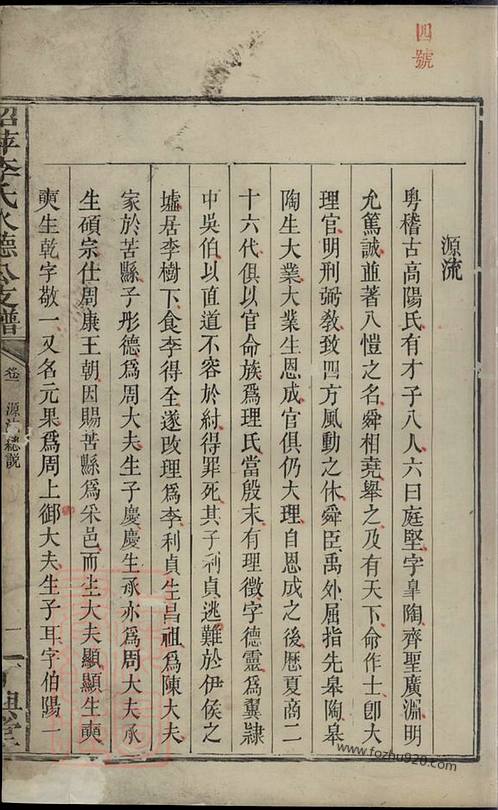 四號
源流
粤稽古高陽氏有才子八人六曰庭堅字臯陶齊聖廣淵明
允篤誠並著八愷之名舜相堯舉之及有天下命作士卽大
理官明刑弼敎致四方風動之休舜臣禹外屈指先皋陶皋
陶生大業大業生恩成官俱仍大理自恩成之後歴夏商二
十六代俱以官命族爲理氏當殷末有理徵字德靈爲翼隷
中吳伯以直道不容於紂得罪死其子利貞逃難於伊侯之
墟居李樹下食李得全遂改理爲李利貞生昌祖爲陳大夫
家於苦縣子彤德爲周大夫生子慶慶生承亦爲周大夫承
生碩宗仕周康王朝因賜苦縣爲采邑而生大夫顯顯生奭
奭生乾字敬一又名元果爲周上御大夫生子耳字伯陽一
李氏永德公支譜
卷
源流總說
www.fozhu920.com